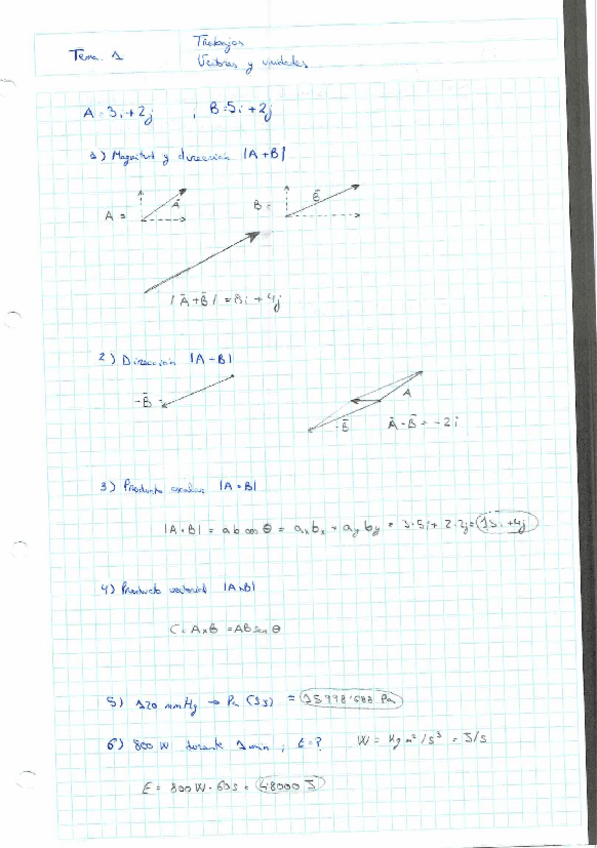 Tema. 1
Trabajos
Vectores y unidades
A = 3i + 2j ; B = 5i + 2j
1) Magnitud y dirección |A+B|
A = Ā
B = B̄
|Ā+B̄| = 8i + 4j
2) Dirección |A-B|
-B̄
A
-B̄
Ā-B̄ = -2i
3) Producto escalar |A·B|
|A·B| = ab cos θ = axbx + ayby = 3·5i + 2·2j = 15i + 4j
4) Producto vectorial |AxB|
C = AxB = AB sen θ
5) 120 mmHg → Pa (SI) = 15998'688 Pa
6) 800 W durante 1 min ; E = ? W = Kg m²/s³ = J/s
E = 800W · 60s = 48000 J